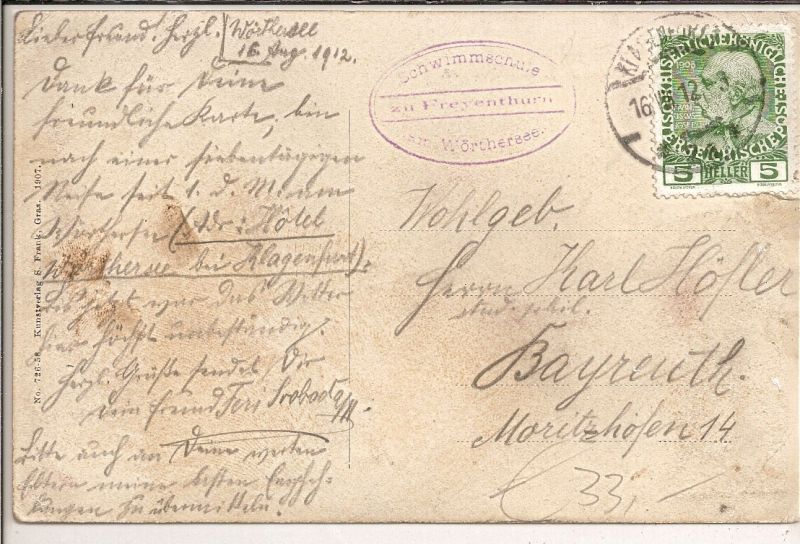 Lieber Freund! Herzl.
Wörthersee
16. Aug. 1912.
Dank für Deine
freundliche Karte, bin
nach einer siebentägigen
Reise seit 1. d. M. am
Wörthersee (Adr.: Hôtel
Wörthersee bei Klagenfurt).
Bis jetzt war das Wetter
hier höchst unbeständig.
Herzl. Grüße sendet Dir
Dein Freund Feri Svoboda
Bitte auch an Deine werten
Eltern meine besten Empfeh-
lungen zu übermitteln.
No. 726-58. Kunstverlag S. Frank, Graz. 1907.
Schwimmschule
zu Freyenthurn
am Wörthersee.
KLAGENFURT
16. 12
1908
5 HELLER 5
Wohlgeb.
Herrn Karl Höfler
stud. phil.
Bayreuth.
Moritzhöfen 14
33,-